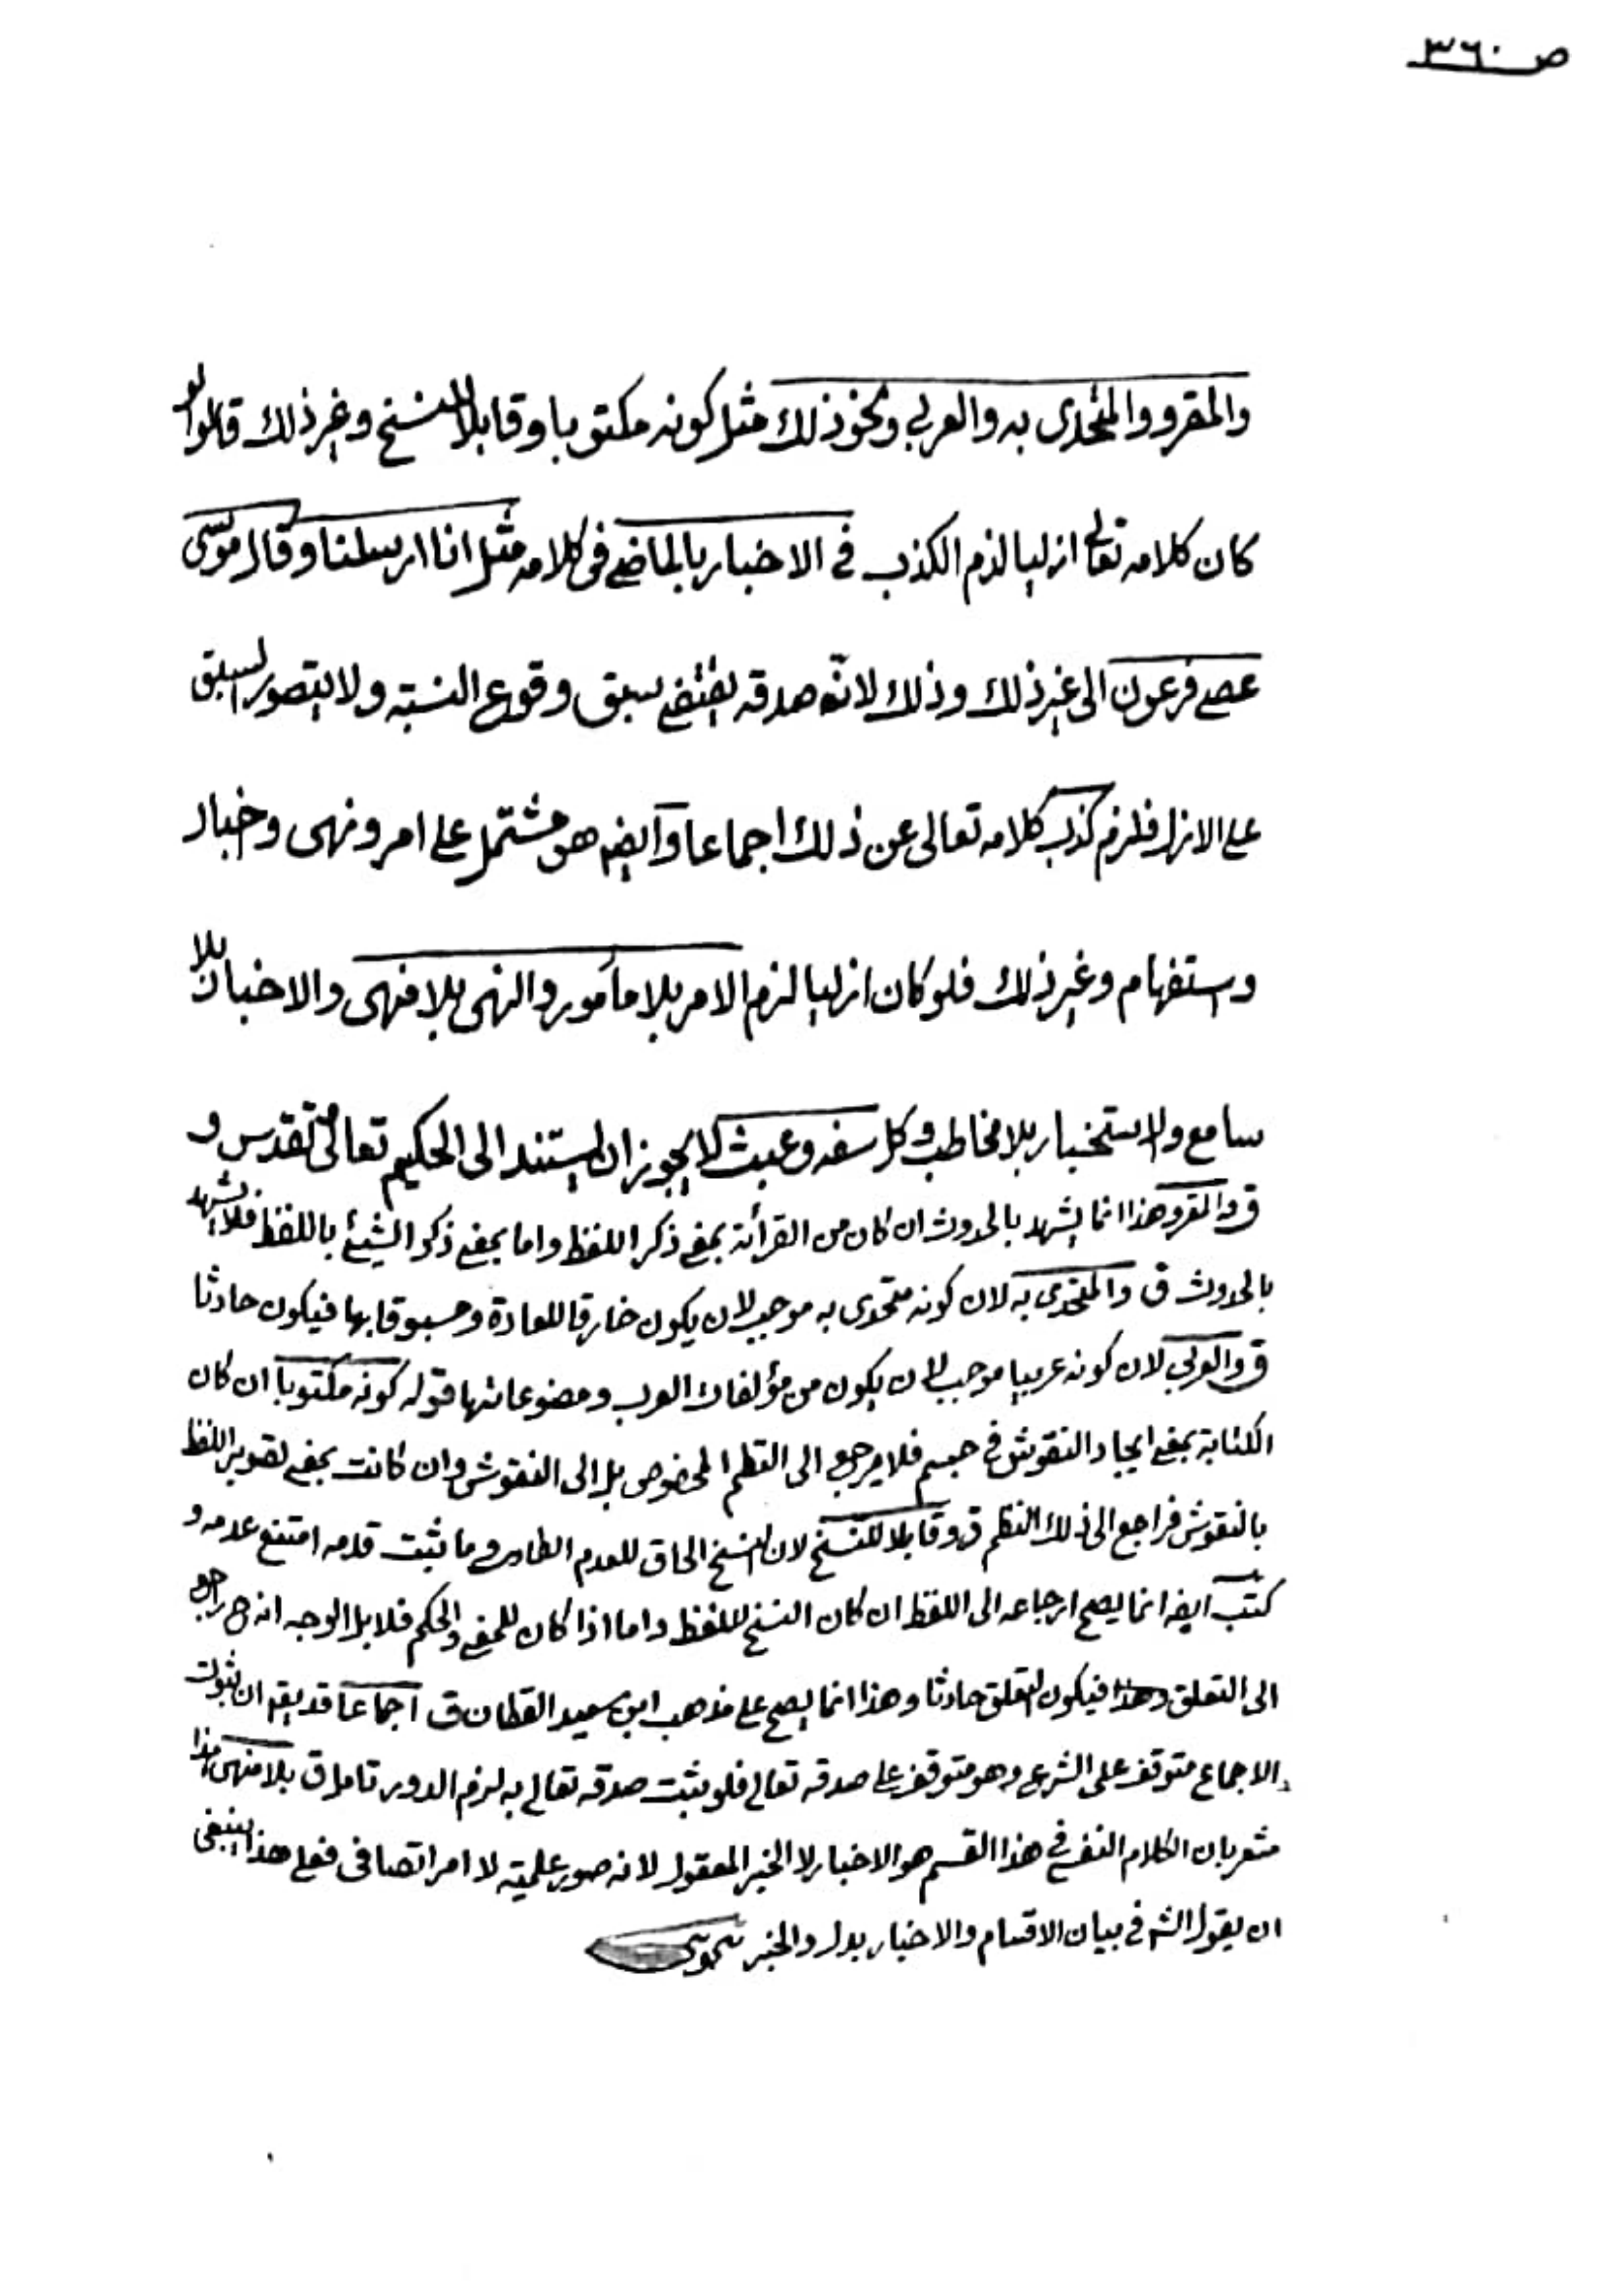 ص ٣٦٠
والمقرو والمتحدى به والعربي ونحو ذلك مثل كونه مكتوبا وقابلا للنسخ وغير ذلك قالوا لو
كان كلامه تعالى ازليا لزم الكذب في الاخبار بالماضي في كلامه مثل انا ارسلنا وقال موسى
عصى فرعون الى غير ذلك وذلك لانه صدقه يقتضي سبق وقوع النسبة ولا يتصور السبق
على الازل فلزم كذب كلامه تعالى عن ذلك اجماعا وايضه هو مشتمل على امر ونهى وخبار
وستفهام وغير ذلك فلو كان ازليا لزم الامر بلا مأمور والنهى بلا منهى والاخبار بلا
سامع والاستخبار بلا مخاطب وكل سفه وعبث لا يجوز ان يستند الى الحكيم تعالى تقدس و
ق والمقرو هذا انما يشهد بالحدوث ان كان من القرأة بمعى ذكر اللفظ واما بمعى ذكر الشيئ باللفظ فلا يشهد
بالحدوث ق والمتحدى به لان كونه متحدى به موجب لان يكون خارقا للعادة ومسبوقا بها فيكون حادثا
ق والعربي لان كونه عربيا موجب لان يكون من مؤلفات العرب وموضوعاتها قوله كونه مكتوبا ان كان
الكتابة بمعى ايجاد النقوش في جسم فلا يرجع الى النظم المخصوص بل الى النقوش وان كانت بمعى تصوير اللفظ
بالنقوش فراجع الى ذلك النظم ق وقابلا للنسخ لان النسخ الحاق للعدم الطارى وما ثبت قدمه امتنع عدمه و
كتب ايضه انما يصح ارجاعه الى اللفظ ان كان النسخ للفظ واما اذا كان للمعى والحكم فلا بل الوجه انه ح راجع
الى التعلق فيكون التعلق حادثا وهذا انما يصح على مذهب ابن سعيد القطان ق اجماعا قد يقه ان ثبوت
الاجماع متوقف على الشرع وهو متوقف على صدقه تعالى فلو ثبت صدقه تعالى به لزم الدور تامل ق بلا منهى هذا
مشعر بان الكلام النفسي في هذا القسم هو الاخبار لا الخبر المعقول لانه صور علمية لا امر اتصافى فعلى هذا ينبغى
ان يقول الشه في بيان الاقسام والاخبار بدل والخبر